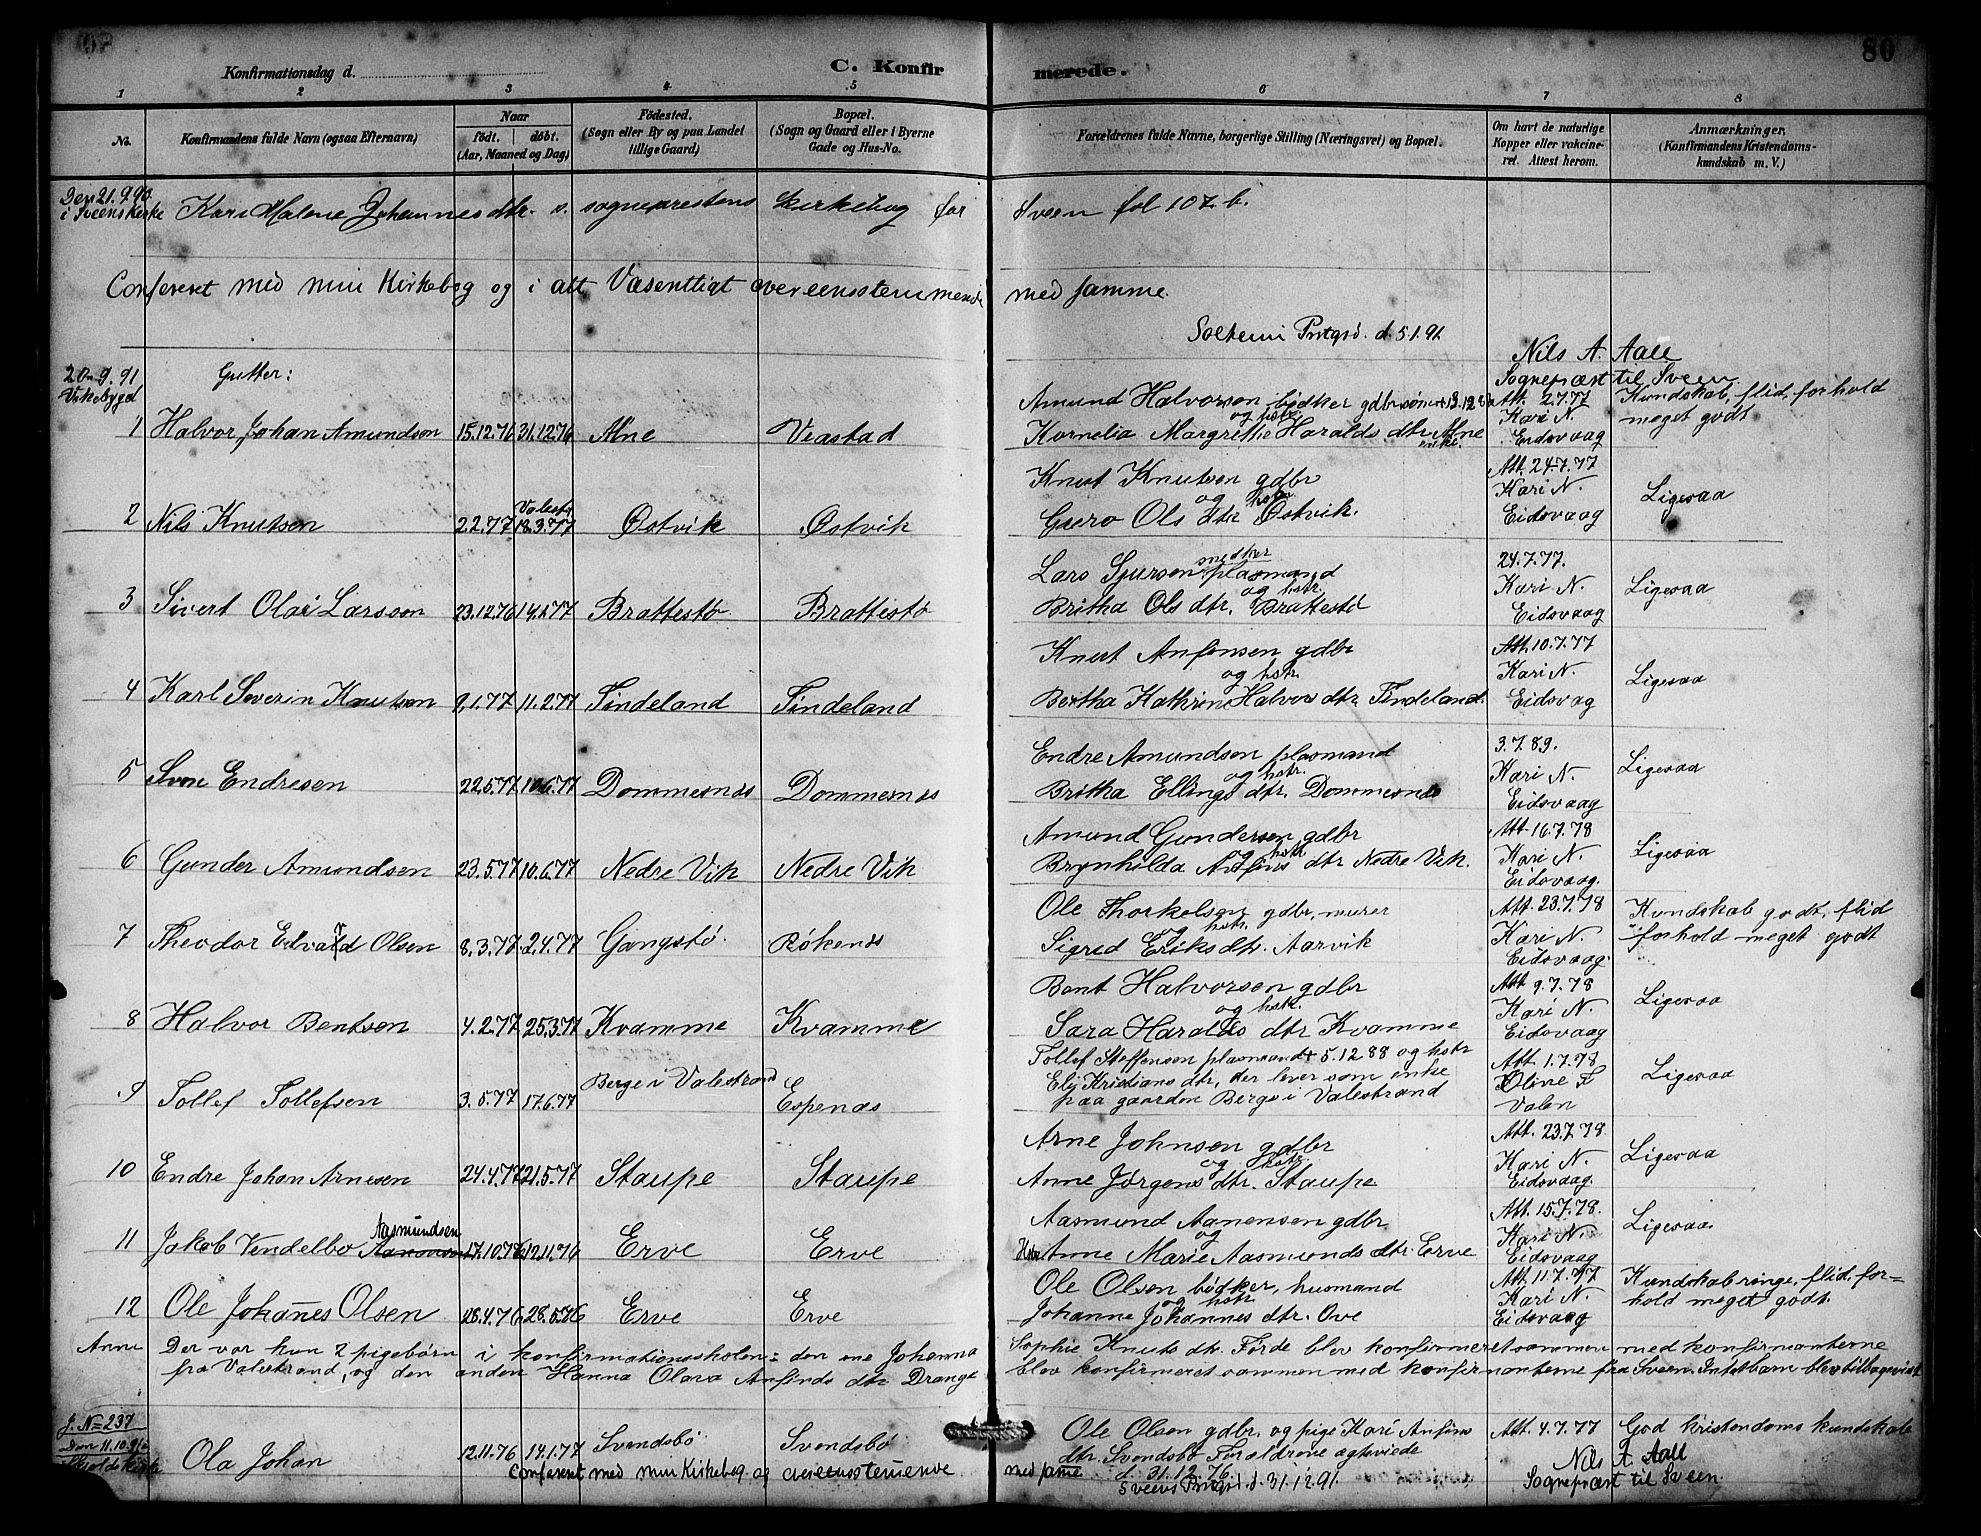 80
Konfirmationsdag d.
C. Konfirmerede.
1 2 3 4 5 6 7 8
No.
Konfirmandens fulde Navn (ogsaa Efternavn)
Naar
født. døbt.
(Aar, Maaned og Dag)
Fødested.
(Sogn eller By og paa Landet
tillige Gaard)
Bopæl.
(Sogn og Gaard eller i Byerne
Gade og Hus-No.
Forældrenes fulde Navne, borgerlige Stilling (Næringsvei) og Bopæl.
Om havt de naturlige
Kopper eller vakcine-
ret. Attest herom.
Anmærkninger,
(Konfirmandens Kristendoms-
kundskab m. V.)
Den 21.9.90
i Sveens kirke
Kari Malene Johannesdtr. s. sogneprestens kirkebog for Sveen fol 107 b.
Confereret med min Kirkebog og i alt Væsentligt overeensstemmende med samme.
d. 5.1.91
Nils A. Aall
Sognepræst til Sveen.
20-9.91
Vikebygd
Gutter:
1 Halvor Johan Amundsen 15.12.76 31.12.76 Alne Veastad
Amund Halvorsen bødker gdbrsøn
og hstr.
Kornelia Margrethe Haralds dtr Alne
enke.
Att. 2.7.77
Kari N.
Eidsvaag
Kundskab, flid, forhold
meget godt
2 Nils Knutsen 2.2.77 Valestr. 18.3.77 Østvik Østvik
Knut Knutsen gdbr
og hstr
Guro Ols dtr Østvik.
Att. 24.7.77
Kari N.
Eidsvaag
Ligesaa
3 Sivert Olai Larsson 23.12.76 14.1.77 Brattestø Brattestø
Lars Sjursen plasmand
og hstr.
Britha Ols dtr. Brattestø
24.7.77.
Kari N.
Eidsvaag
Ligesaa
4 Karl Severin Knutsen 9.1.77 11.2.77 Tindeland Tindeland
Knut Anfinsen gdbr
og hstr.
Bertha Kathrine Halvors dtr Tindeland.
Att. 10.7.77
Kari N.
Eidsvaag
Ligesaa
5 Endresen 22.5.77 10.6.77 Dommesnes Dommesnes
Endre Amundsen plasmand
og hstr.
Britha Ellings dtr. Dommesnes
3.7.89.
Kari N.
Eidsvaag
Ligesaa
6 Gunder Amundsen 23.5.77 10.6.77 Nedre Vik Nedre Vik
Amund Gundersen gdbr
og hstr.
Brynhilda Anfins dtr Nedre Vik.
Att 16.7.78
Kari N.
Eidsvaag.
Ligesaa
7 Theodor Edvard Olsen 8.3.77 2.4.77 Gangstø Røkenes
Ole Thorkelsen gdbr, murer
og hstr.
Sigrid Eriksdtr. Aarvik
Att. 23.7.78
Kari N.
Eidsvaag.
Kundskab godt, flid
forhold meget godt
8 Halvor Bentsen 4.2.77 25.3.77 Kvamme Kvamme
Bent Halvorsen gdbr
og hstr.
Sara Haralds dtr Kvamme
Att 9.7.78
Kari N.
Eidsvaag
Ligesaa
9 Tollef Tollefsen 3.5.77 17.6.77 Berge i Valestrand Espenes
Tollef Steffensen plasmand + 5.12 88 og hstr
Eli Kristians dtr, der lever som enke
paa gaarden Berge i Valestrand
Att. 1.7.78
Oline T
Valen
Ligesaa
10 Endre Johan Arnesen 24.4.77 21.5.77 Staupe Staupe
Arne Johnsen gdbr
og hstr.
Anne Jørgens dtr. Staupe
Att. 23.7.78
Kari N.
Eidsvaag
Ligesaa
11 Jakob Vendelbo Aasmundsen 17.10.76 12.11.76 Erve Erve
Aasmund Aanensen gdbr
og
Hstr Anne Marie Aasmunds dtr. Erve
Att. 15.7.78.
Kari N.
Eidsvaag
Ligesaa
12 Ole Johañes Olsen 28.4.76 28.5.76 Erve Erve
Ole Olsen bødker, husmand
og hstr
Johanne Johannes dtr. Ove
Att. 11.7.77
Kari N.
Eidsvaag
Kundskab ringe, flid, for=
hold meget godt.
Der var kun 2 pigebørn i konfirmationsskolen = den ene Johanna Sophie Knuts dtr. Førde blev konfirmeret sammen med konfirmanterne
fra Valestrand, og den anden Hanna Olava Anfinds dtr Drange blev konfirmeret sammen med konfirmanterne fra Sveen. Intet barn blev tilbagevist
J. No 237
Den 11.10.91
Skjolds kirke
Ola Johan 12.11.76 14.1.77 Svendsbø Svendsbø
Ole Olsen gdbr. og pige Kari Anfins
dtr. Svendsbø Foreldrene egteviede
d. 31.12.76.
Att. 4.7.77
God kristendoms kundskab
Confereret med min Kirkebog og overeensstemmende med same
Sveens Prstgrd. d. 31.12.91
Nils A. Aall
Sognepræst til Sveen.